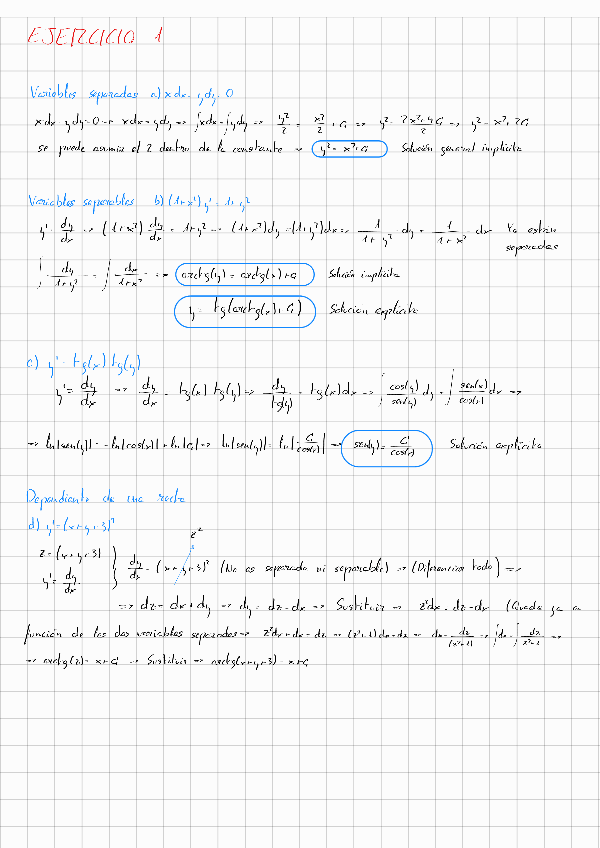 EJERCICIO 1
Variables separadas a) x dx - y dy = 0
x dx - y dy = 0 → x dx = y dy => ∫x dx = ∫y dy => y²/2 = x²/2 + C₁ => y² = (2x² + 4C₁)/2 => y² = x² + 2C₁
se puede asumir el 2 dentro de la constante → y² = x² + C₁ Solución general implícita
Variables separables b) (1+x²) y' = 1+y²
y' = dy/dx => (1+x²) dy/dx = 1+y² => (1+x²)dy = (1+y²)dx => 1/(1+y²) dy = 1/(1+x²) dx Ya están
separadas
∫ dy/(1+y²) = ∫ dx/(1+x²) => arctg(y) = arctg(x) + C₁ Solución implícita
y = tg(arctg(x) + C₁) Solución explícita
c) y' = tg(x) tg(y)
y' = dy/dx => dy/dx = tg(x) tg(y) => dy/tg(y) = tg(x) dx => ∫ cos(y)/sen(y) dy = ∫ sen(x)/cos(x) dx =>
=> ln|sen(y)| = -ln|cos(x)| + ln|C₁| => ln|sen(y)| = ln|C₁/cos(x)| => sen(y) = C₁/cos(x) Solución explícita
Dependiente de una recta
d) y' = (x+y+3)²
z²
z = (x+y+3)
y' = dy/dx } dy/dx = (x+y+3)² (No es separada ni separable) => (Diferenciar todo) =>
=> dz = dx + dy => dy = dz - dx => Sustituir => z²dx = dz - dx (Queda ya en
función de las dos variables separadas => z²dx + dx = dz => (z²+1)dx = dz => dx = dz/(z²+1) => ∫dx = ∫ dz/(z²+1) =>
=> arctg(z) = x + C₁ => Sustituir => arctg(x+y+3) = x + C₁